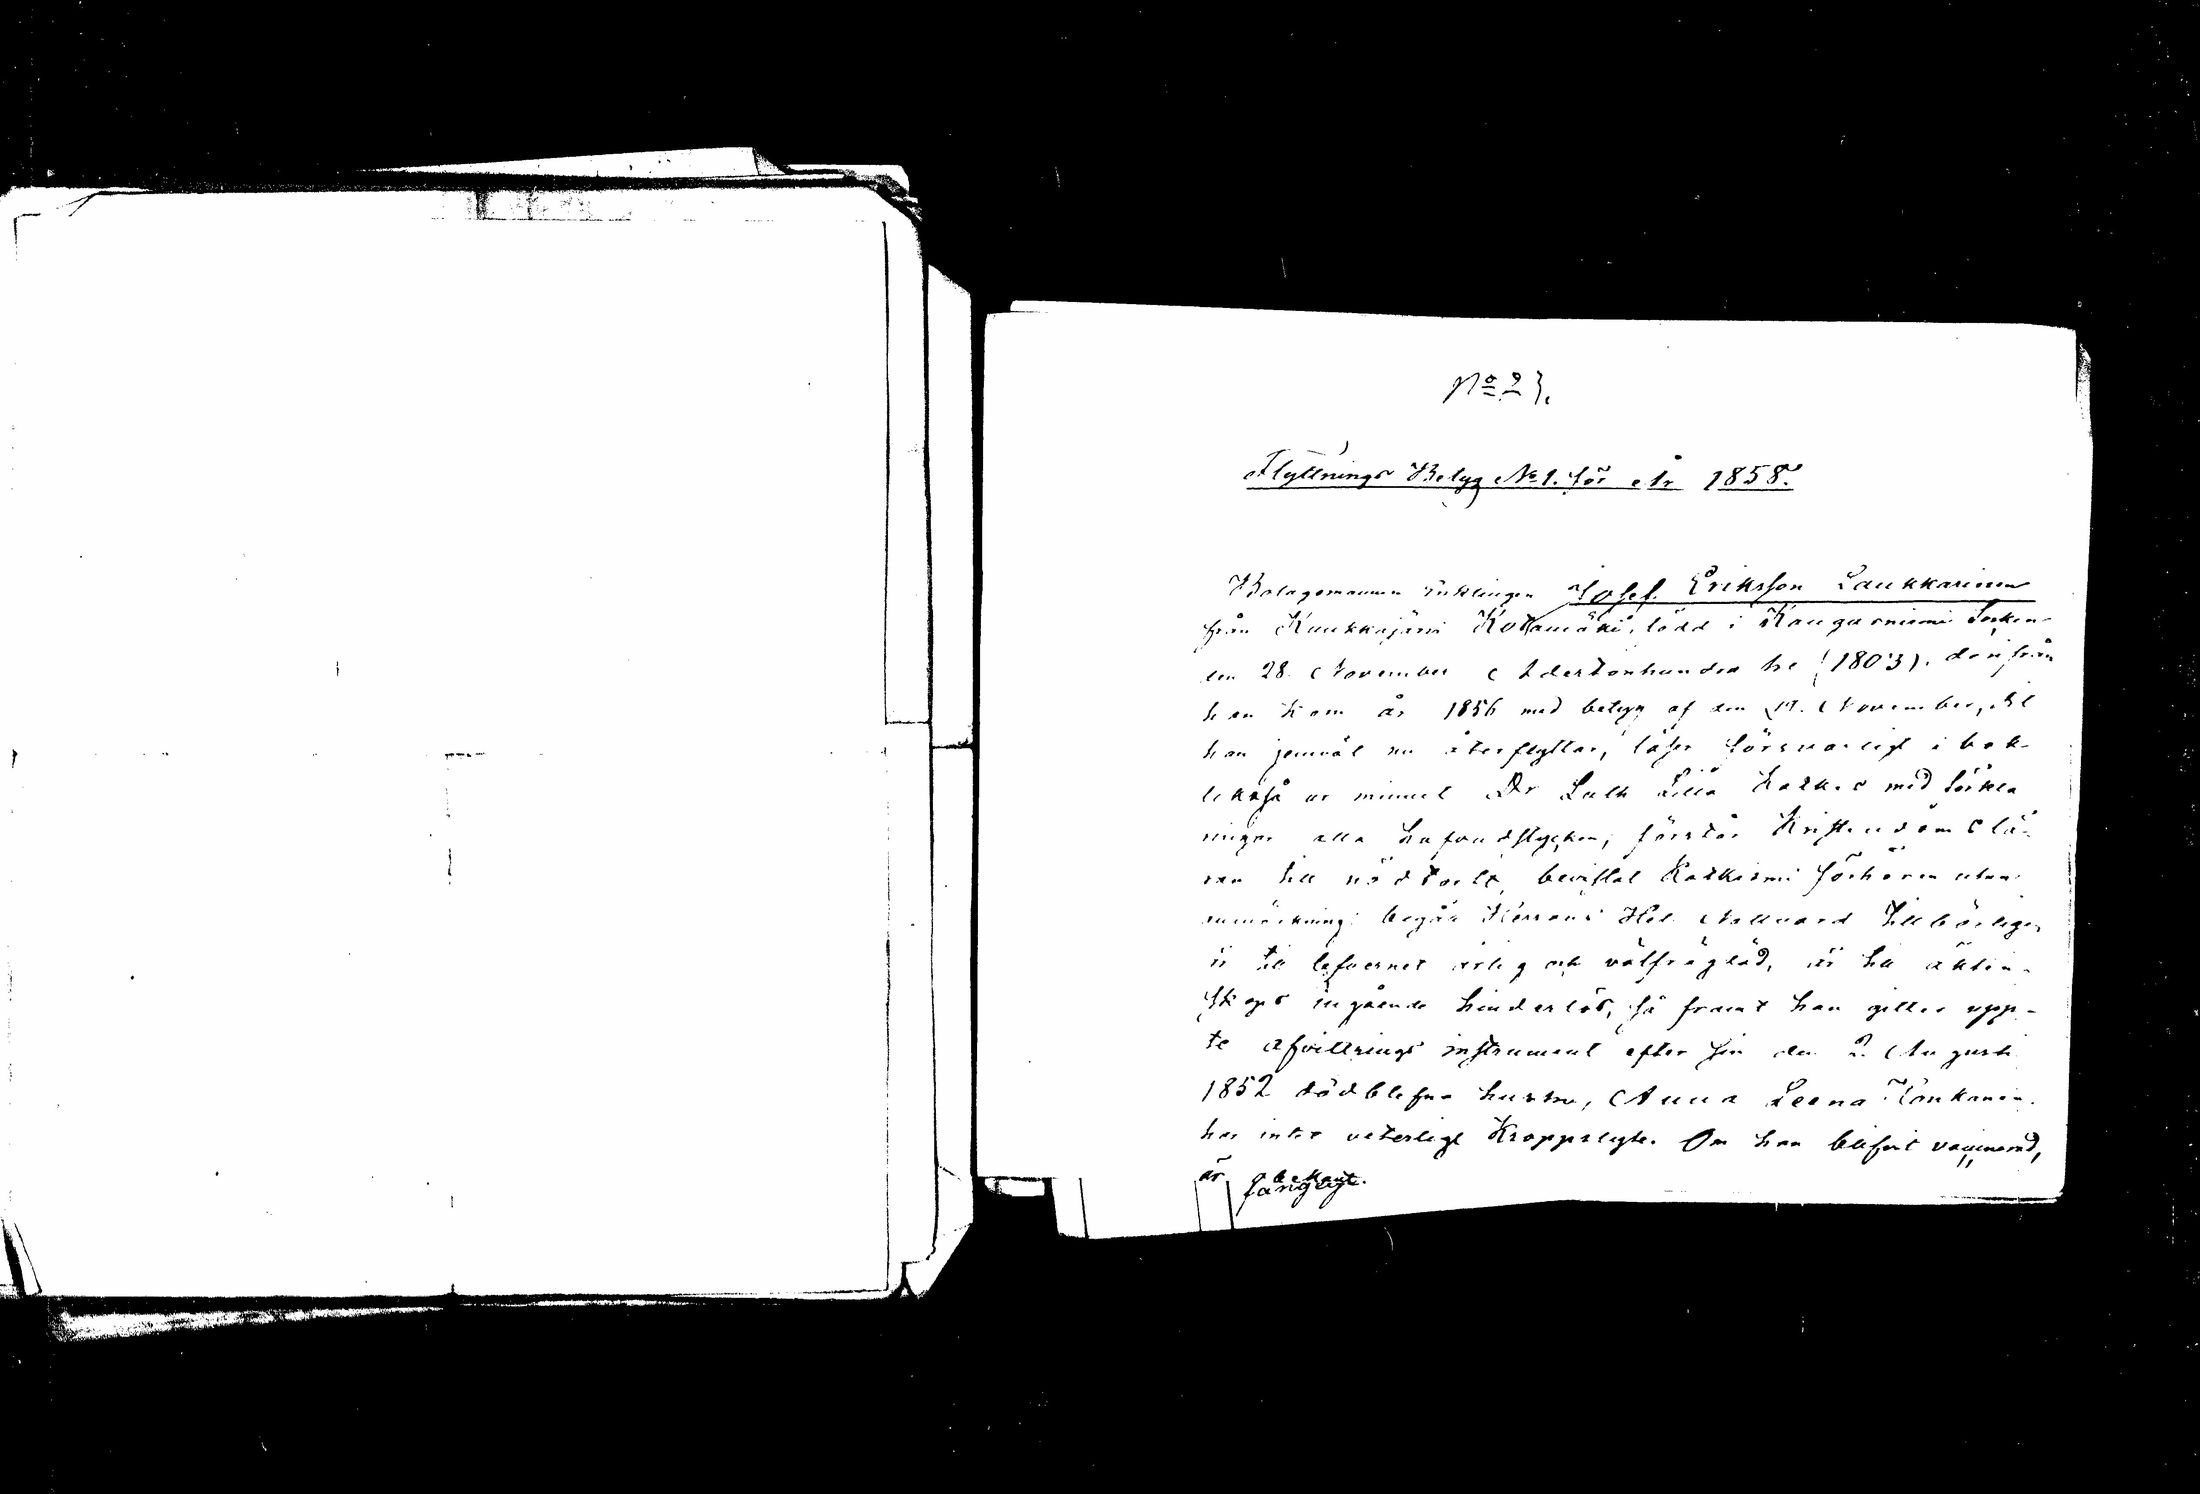 No 23.
Flyttnings Betyg No 1. för År 1858.
Bolagsmannen Enklingen Josef Eriksson Laukkarinen
från Kuukkajärvi Kotamäki, född i Kangasniemi Socken
den 28. November Adertonhundra tre (1803). derifrån
han kom år 1856 med betyg af den 17. November, dit
han jemväl nu återflyttar, läser försvarligt i bok
likaså ur minnet Dr Luth Lilla Katkes med förkla
ringar alla hufvudstycken, förstår Kristendoms lä-
ran till nödtorft, bevistat Katkismi förhören utan
anmärkning: begått Herrans Hel. Nattvard tillbörligen
är till lefvernet ärlig och välfrägdad, är till äkten-
skaps ingående hinderlös, så framt han gitter uppte
te afvittrings instrument efter sin den 2. Augusti
1852 dödblefna hustru, Anna Leena Tönkanen.
har intet veterligt Kroppslyte. Om han blifvit vaccinerad,
är obekant.